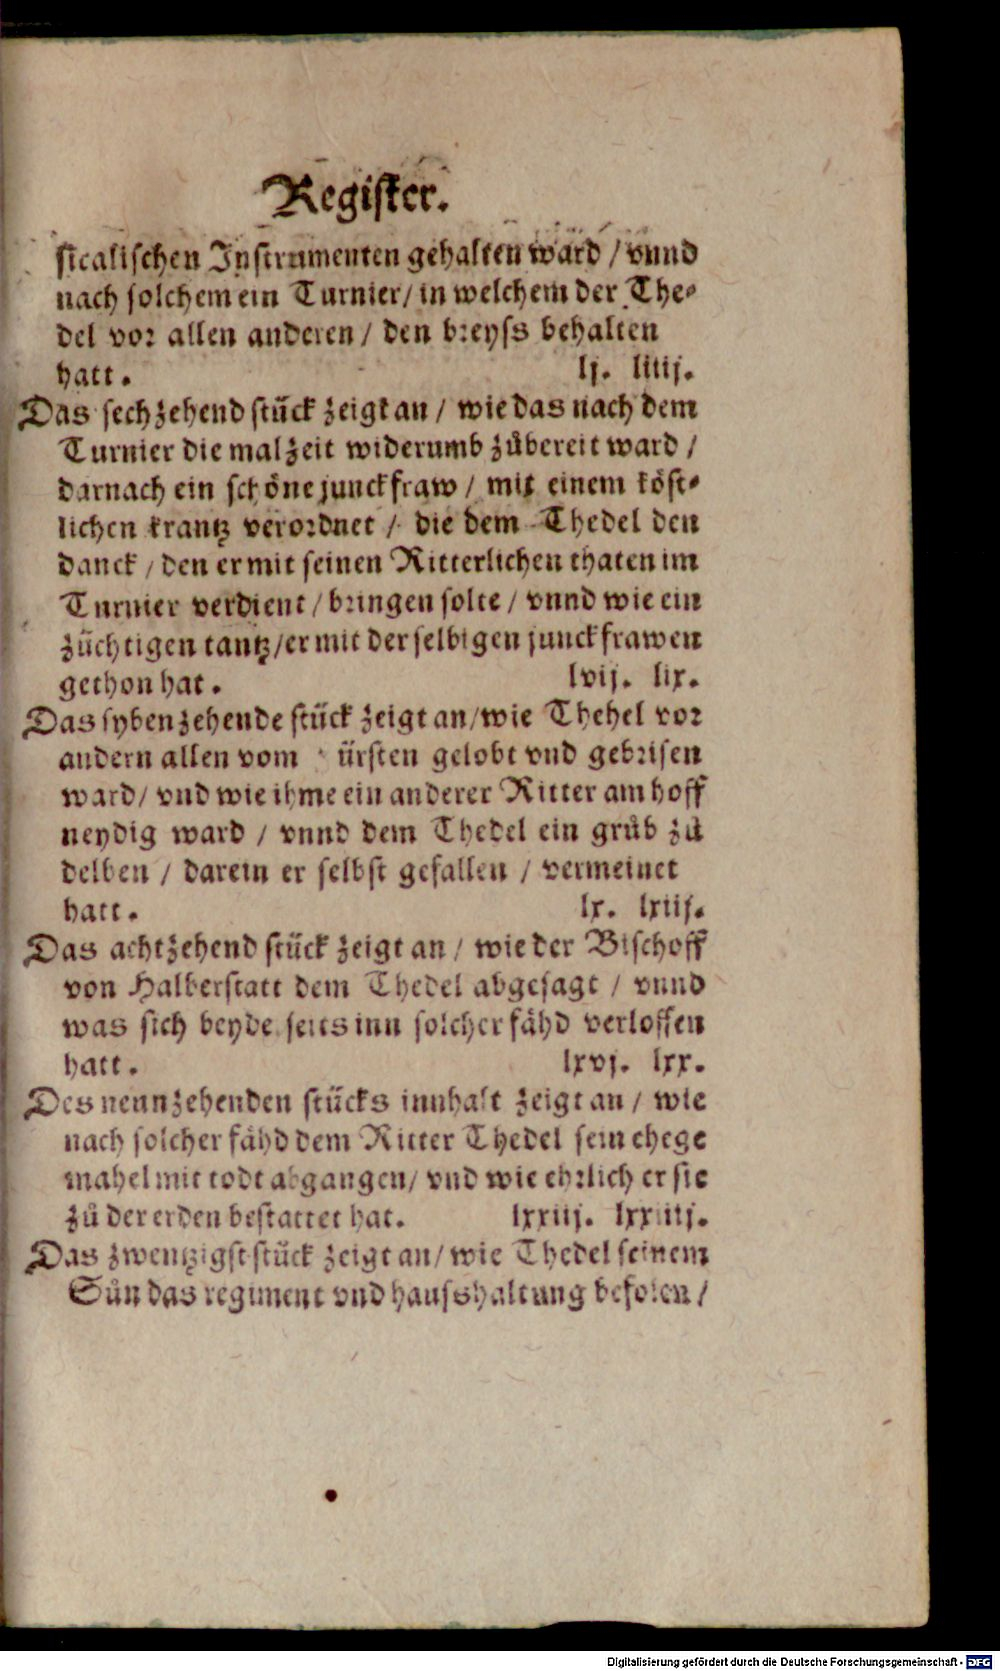 Register.
sicalischen Instrumenten gehalten ward / vnnd
nach solchem ein Turnier / in welchem der The-
del vor allen anderen / den breyss behalten
hatt. lj. liiij.
Das sechzehend stück zeigt an / wie das nach dem
Turnier die malzeit widerumb zůbereit ward /
darnach ein schöne junckfraw / mit einem köst-
lichen krantz verordnet / die dem Thedel den
danck / den er mit seinen Ritterlichen thaten im
Turnier verdient / bringen solte / vnnd wie ein
züchtigen tantz / er mit der selbigen junckfrawen
gethon hat. lvij. lix.
Das sybenzehende stück zeigt an / wie Thehel vor
andern allen vom ürsten gelobt vnd gebrisen
ward / vnd wie ihme ein anderer Ritter am hoff
neydig ward / vnnd dem Thedel ein grůb zů
delben / darein er selbst gefallen / vermeinet
hatt. lx. lxiij.
Das achtzehend stück zeigt an / wie der Bischoff
von Halberstatt dem Thedel abgesagt / vnnd
was sich beyde seits inn solcher fähd verloffen
hatt. lxvj. lxx.
Des neunzehenden stücks innhalt zeigt an / wie
nach solcher fähd dem Ritter Thedel sein ehege
mahel mit todt abgangen / vnd wie ehrlich er sie
zů der erden bestattet hat. lxxiij. lxxiiij.
Das zwentzigst stück zeigt an / wie Thedel seinem
Sůn das regiment vnd hausshaltung befolen /
Digitalisierung gefördert durch die Deutsche Forschungsgemeinschaft - DFG